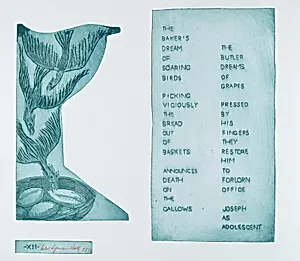 THE
BAKER'S
DREAM
OF
SOARING
BIRDS
PICKING
VICIOUSLY
THE
BREAD
OUT
OF
BASKETS
ANNOUNCES
DEATH
ON
THE
GALLOWS
THE
BUTLER
DREAMS
OF
GRAPES
PRESSED
BY
HIS
FINGERS
THEY
RESTORE
HIM
TO
FORLORN
OFFICE
JOSEPH
AS
ADOLESCENT
-XII-